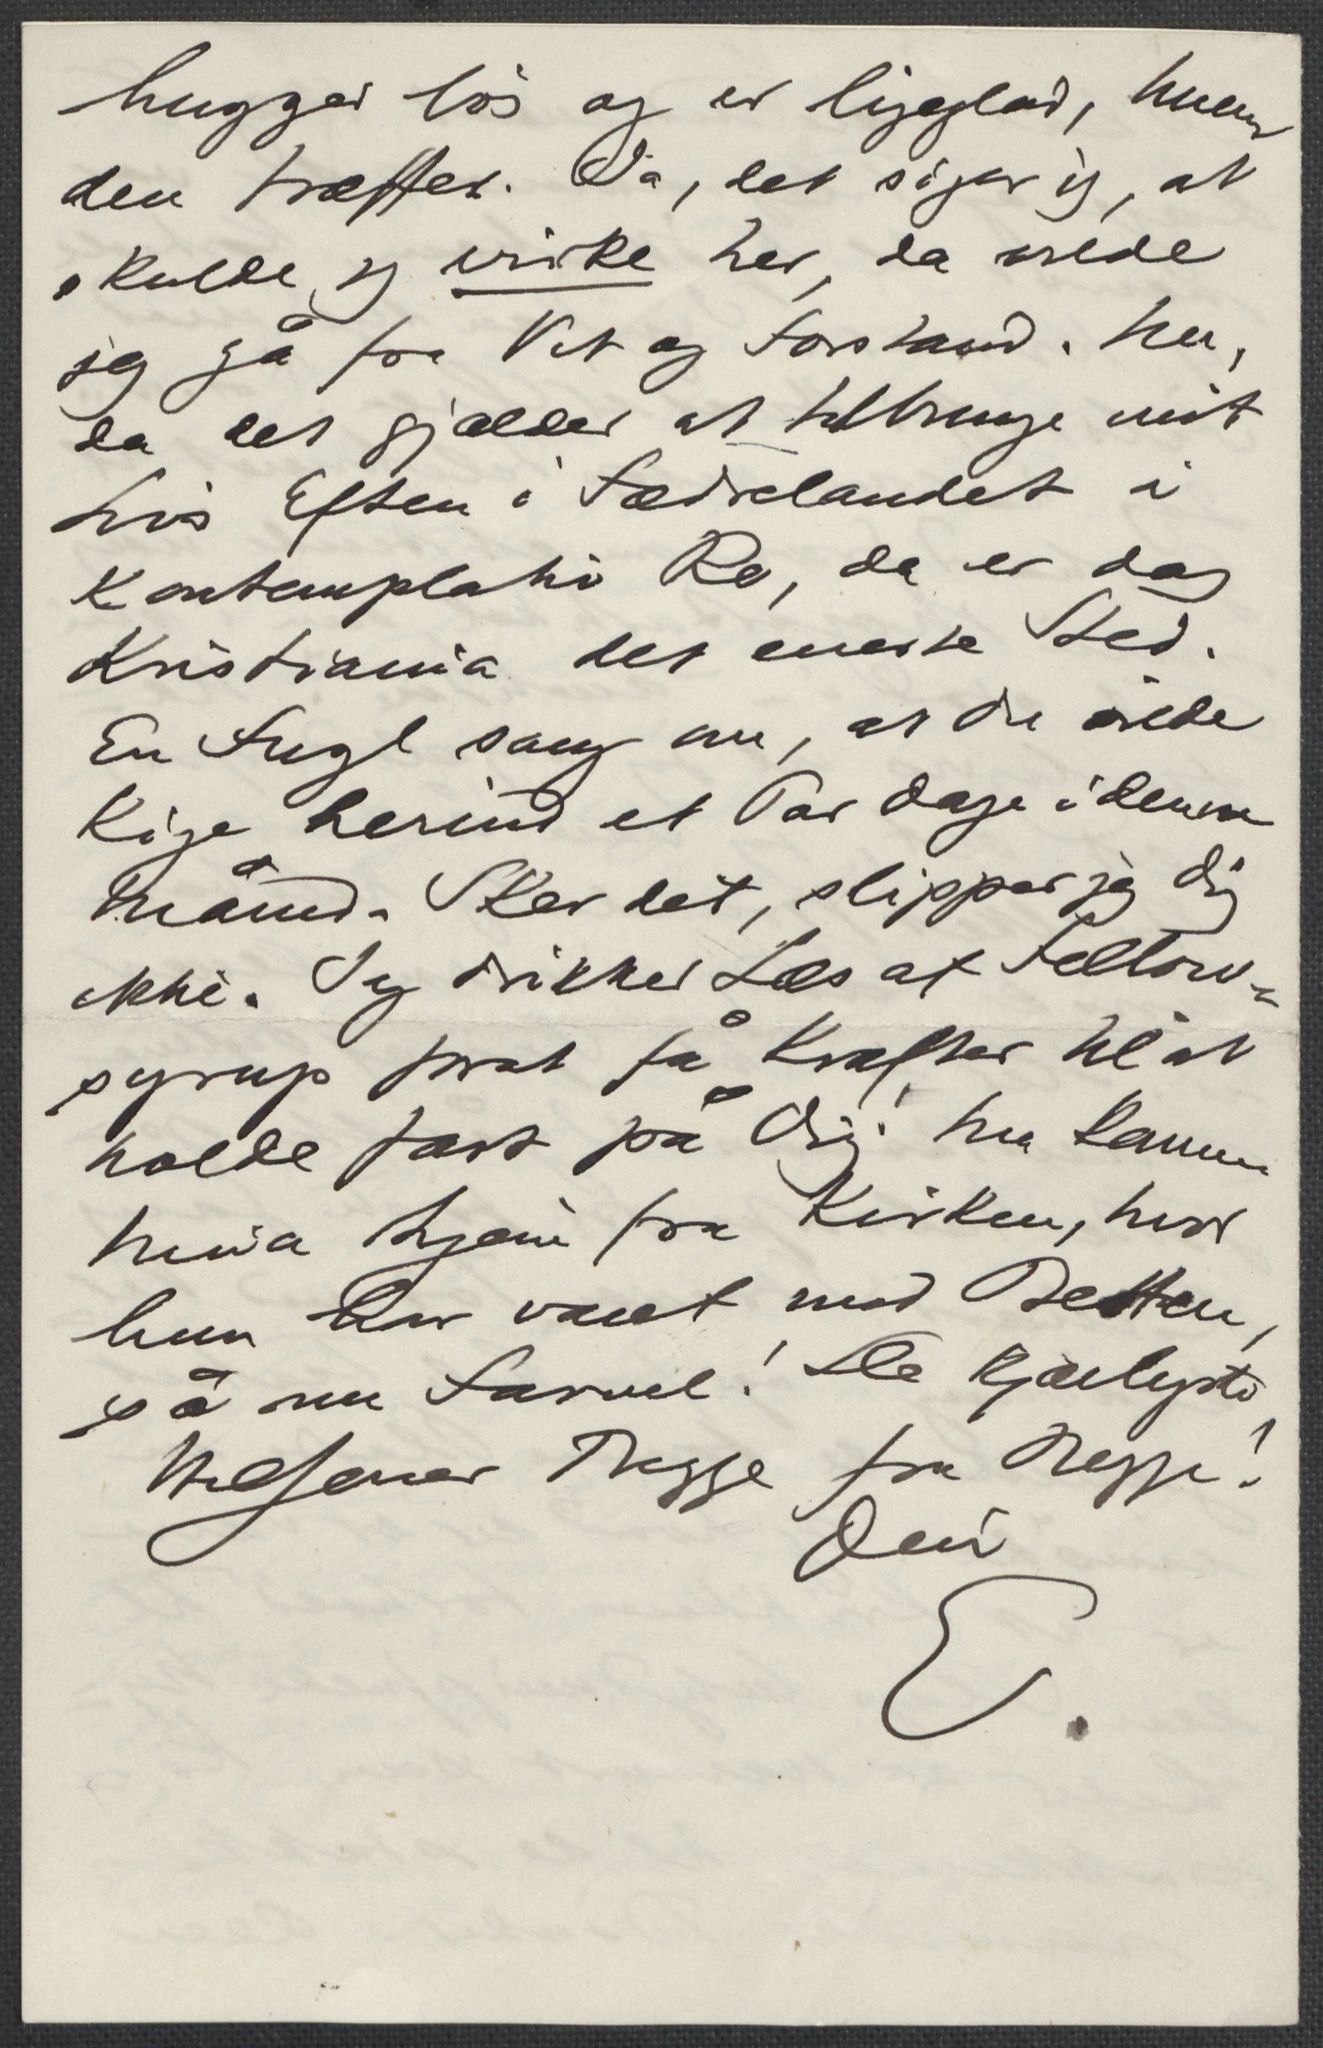 hugger løs og er ligeglad, hvem
den træffer. Ja, det siger jeg, at
skulde jeg virke her, da vilde
jeg gå fra Vet og Forstand. Nu,
da det gjælder at tilbringe mit
Livs Aften i Fædrelandet i
Kontemplativ Ro, da er dog
Kristiania det eneste Sted.
En Fugl sang om, at Du vilde
Kige herind et Par Dage i denne
Måned. Sker det, slipper jeg Dig
ikke. Jeg drikker Læs af Fellow-
syrup forat få Kræfter til at
holde fast på Dig! Nu kommer
Nina hjem fra Kirken, hvor
hun har været med
så nu Farvel! De kjærligste
Hilsener Begge fra Begge!
Din
E.